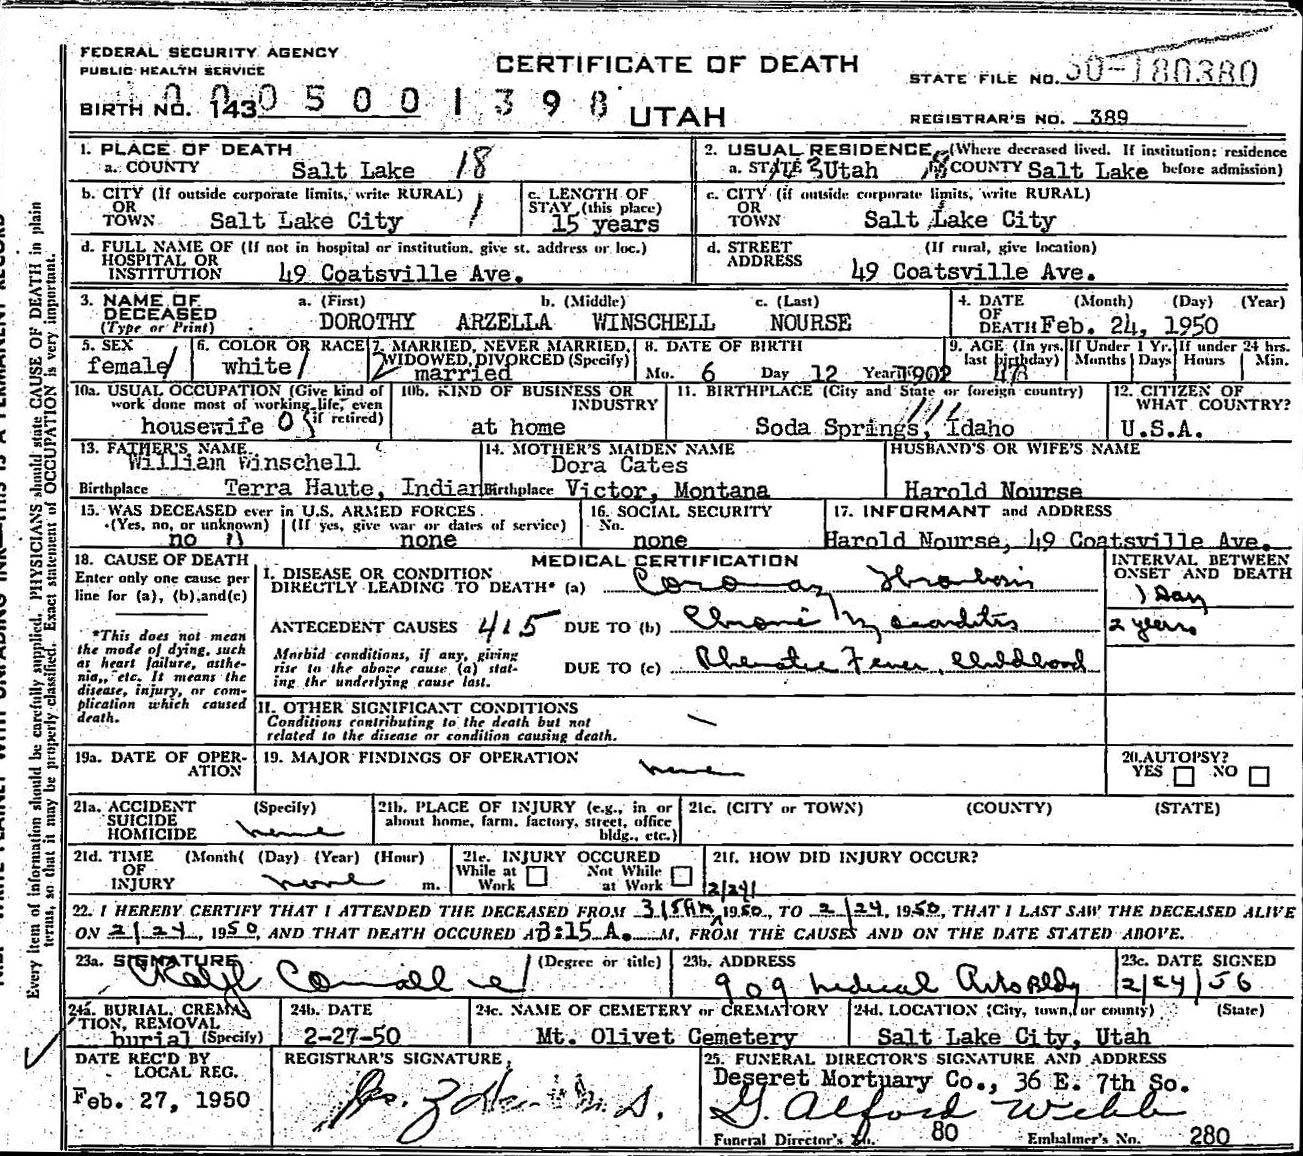 FEDERAL SECURITY AGENCY
PUBLIC HEALTH SERVICE
CERTIFICATE OF DEATH
STATE FILE NO. 50-180380
BIRTH NO. 143 0005001398
UTAH
REGISTRAR'S NO. 389
1. PLACE OF DEATH
a. COUNTY Salt Lake 18
2. USUAL RESIDENCE (Where deceased lived. If institution: residence
a. STATE Utah b. COUNTY Salt Lake before admission)
b. CITY (If outside corporate limits, write RURAL)
OR
TOWN Salt Lake City 1
c. LENGTH OF
STAY (this place)
15 years
c. CITY (if outside corporate limits, write RURAL)
OR
TOWN Salt Lake City
d. FULL NAME OF (If not in hospital or institution, give st. address or loc.)
HOSPITAL OR
INSTITUTION 49 Coatsville Ave.
d. STREET (If rural, give location)
ADDRESS 49 Coatsville Ave.
3. NAME OF DECEASED (Type or Print)
a. (First) b. (Middle) c. (Last)
DOROTHY ARZELLA WINSCHELL NOURSE
4. DATE OF DEATH (Month) (Day) (Year)
Feb. 24, 1950
5. SEX
female
6. COLOR OR RACE
white
7. MARRIED, NEVER MARRIED,
WIDOWED, DIVORCED (Specify)
married
8. DATE OF BIRTH
Mo. 6 Day 12 Year 1902
9. AGE (In yrs. last birthday) 48
If Under 1 Yr. Months Days
If under 24 hrs. Hours Min.
10a. USUAL OCCUPATION (Give kind of
work done most of working life, even
if retired)
housewife
10b. KIND OF BUSINESS OR
INDUSTRY
at home
11. BIRTHPLACE (City and State or foreign country)
Soda Springs, Idaho
12. CITIZEN OF
WHAT COUNTRY?
U.S.A.
13. FATHER'S NAME
William Winschell
Birthplace Terra Haute, Indian
14. MOTHER'S MAIDEN NAME
Dora Cates
Birthplace Victor, Montana
HUSBAND'S OR WIFE'S NAME
Harold Nourse
15. WAS DECEASED ever in U.S. ARMED FORCES
(Yes, no, or unknown) (If yes, give war or dates of service)
no none
16. SOCIAL SECURITY
No.
none
17. INFORMANT and ADDRESS
Harold Nourse, 49 Coatsville Ave.
18. CAUSE OF DEATH
Enter only one cause per
line for (a), (b), and (c)
*This does not mean
the mode of dying, such
as heart failure, asthe-
nia, etc. It means the
disease, injury, or com-
plication which caused
death.
MEDICAL CERTIFICATION
INTERVAL BETWEEN
ONSET AND DEATH
I. DISEASE OR CONDITION
DIRECTLY LEADING TO DEATH* (a) Coronary Thrombosis
1 Day
ANTECEDENT CAUSES 415 DUE TO (b) Chronic Myocarditis
2 years
Morbid conditions, if any, giving
rise to the above cause (a) stat-
ing the underlying cause last.
DUE TO (c) Rheumatic Fever, Childhood
II. OTHER SIGNIFICANT CONDITIONS
Conditions contributing to the death but not
related to the disease or condition causing death.
19a. DATE OF OPER-
ATION
19. MAJOR FINDINGS OF OPERATION
none
20. AUTOPSY?
YES NO
21a. ACCIDENT (Specify)
SUICIDE
HOMICIDE none
21b. PLACE OF INJURY (e.g., in or
about home, farm, factory, street, office
bldg., etc.)
21c. (CITY or TOWN) (COUNTY) (STATE)
21d. TIME (Month( (Day) (Year) (Hour)
OF
INJURY none m.
21e. INJURY OCCURED
While at Work Not While at Work
21f. HOW DID INJURY OCCUR?
2/24/
22. I HEREBY CERTIFY THAT I ATTENDED THE DECEASED FROM 3:15 AM, 1950, TO 2/24, 1950, THAT I LAST SAW THE DECEASED ALIVE
ON 2/24, 1950, AND THAT DEATH OCCURED AT 3:15 A. M, FROM THE CAUSES AND ON THE DATE STATED ABOVE.
23a. SIGNATURE (Degree or title)
23b. ADDRESS
909 Medical Arts Bldg
23c. DATE SIGNED
2/24/56
24a. BURIAL, CREMA-
TION, REMOVAL
burial (Specify)
24b. DATE
2-27-50
24c. NAME OF CEMETERY or CREMATORY
Mt. Olivet Cemetery
24d. LOCATION (City, town, or county) (State)
Salt Lake City, Utah
DATE REC'D BY
LOCAL REG.
Feb. 27, 1950
REGISTRAR'S SIGNATURE
25. FUNERAL DIRECTOR'S SIGNATURE AND ADDRESS
Deseret Mortuary Co., 36 E. 7th So.
G. Alford Webb
Funeral Director's No. 80 Embalmer's No. 280
Every item of information should be carefully supplied. PHYSICIANS should state CAUSE OF DEATH in plain
terms, so that it may be properly classified. Exact statement of OCCUPATION is very important.